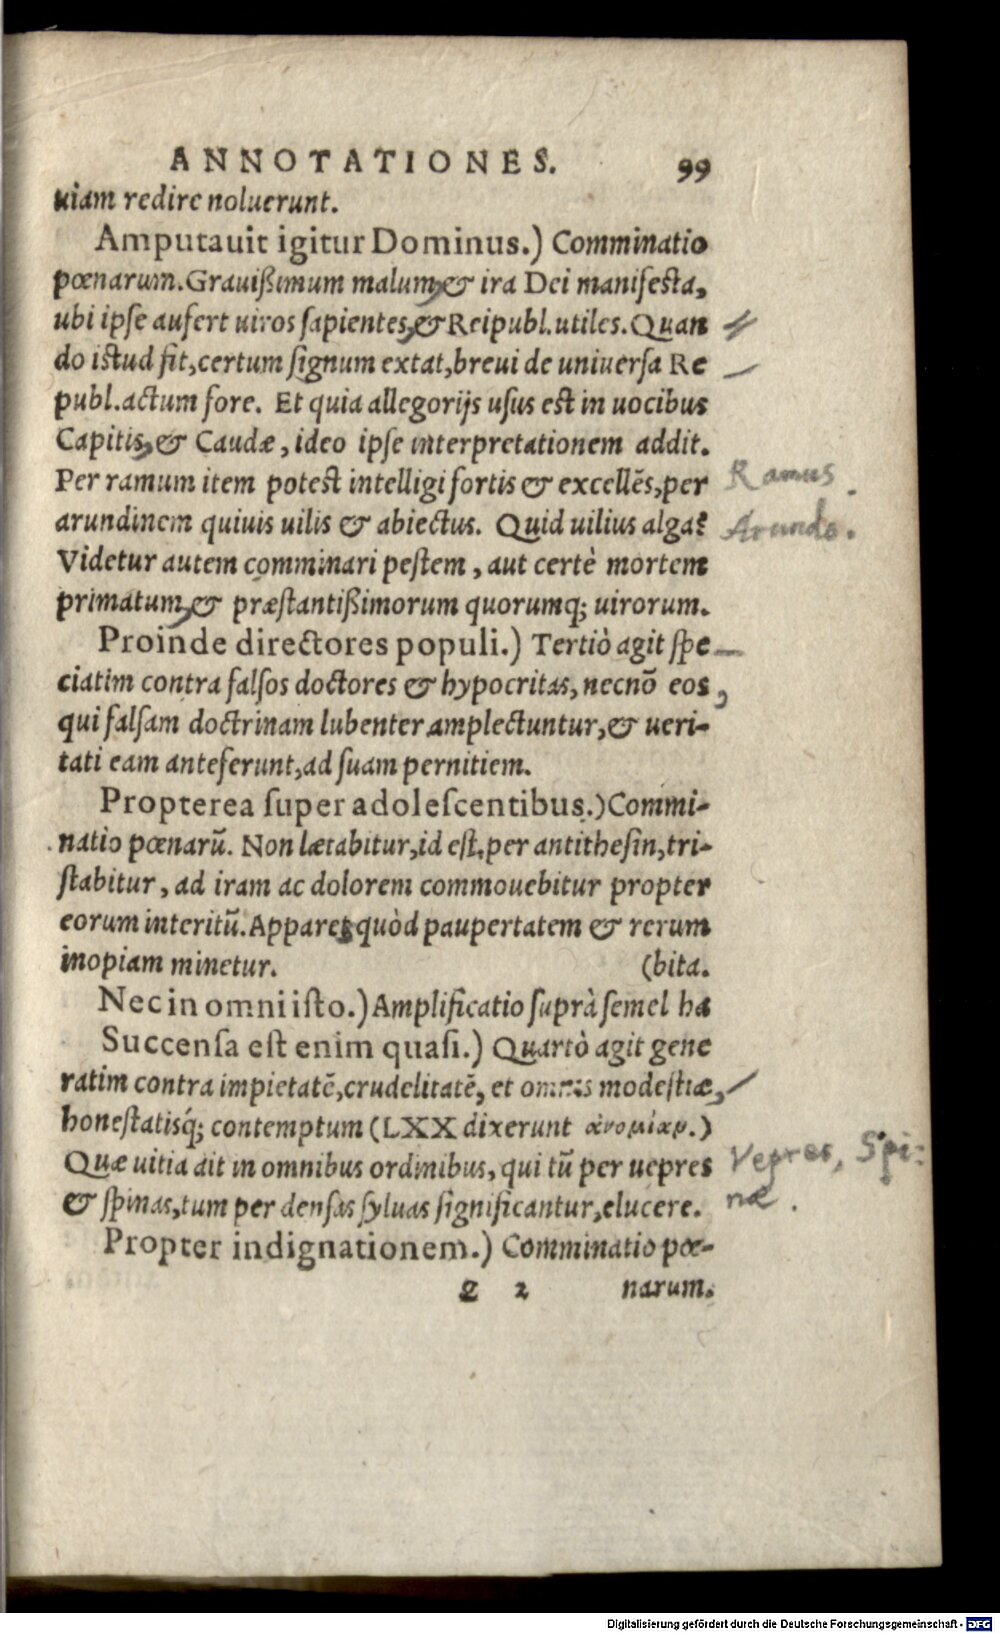 ANNOTATIONES. 99
uiam redire noluerunt.
Amputauit igitur Dominus.) Comminatio
pœnarum. Grauißimum malum, & ira Dei manifesta,
ubi ipse aufert uiros sapientes, & Reipubl. utiles. Quan
do istud fit, certum signum extat, breui de uniuersa Re
publ. actum fore. Et quia allegorijs usus est in uocibus
Capitis, & Caudæ, ideo ipse interpretationem addit.
Per ramum item potest intelligi fortis & excellẽs, per
Ramus.
arundinem quiuis uilis & abiectus. Quid uilius alga?
Arundo.
Videtur autem comminari pestem, aut certè mortem
primatum, & præstantißimorum quorumq; uirorum.
Proinde directores populi.) Tertiò agit spe
ciatim contra falsos doctores & hypocritas, necnõ eos,
qui falsam doctrinam lubenter amplectuntur, & ueri-
tati eam anteferunt, ad suam pernitiem.
Propterea super adolescentibus.) Commi-
natio pœnarũ. Non lætabitur, id est, per antithesin, tri-
stabitur, ad iram ac dolorem commouebitur propter
eorum interitũ. Apparet, quòd paupertatem & rerum
inopiam minetur. (bita.
Nec in omni isto.) Amplificatio suprà semel ha
Succensa est enim quasi.) Quartò agit gene
ratim contra impietatẽ, crudelitatẽ, et omnis modestiæ,
honestatisq́; contemptum (LXX dixerunt ἀνομίαν.)
Quæ uitia ait in omnibus ordinibus, qui tũ per uepres
Vepres, Spi:
& spinas, tum per densas syluas significantur, elucere.
næ.
Propter indignationem.) Comminatio pœ-
2 narum.